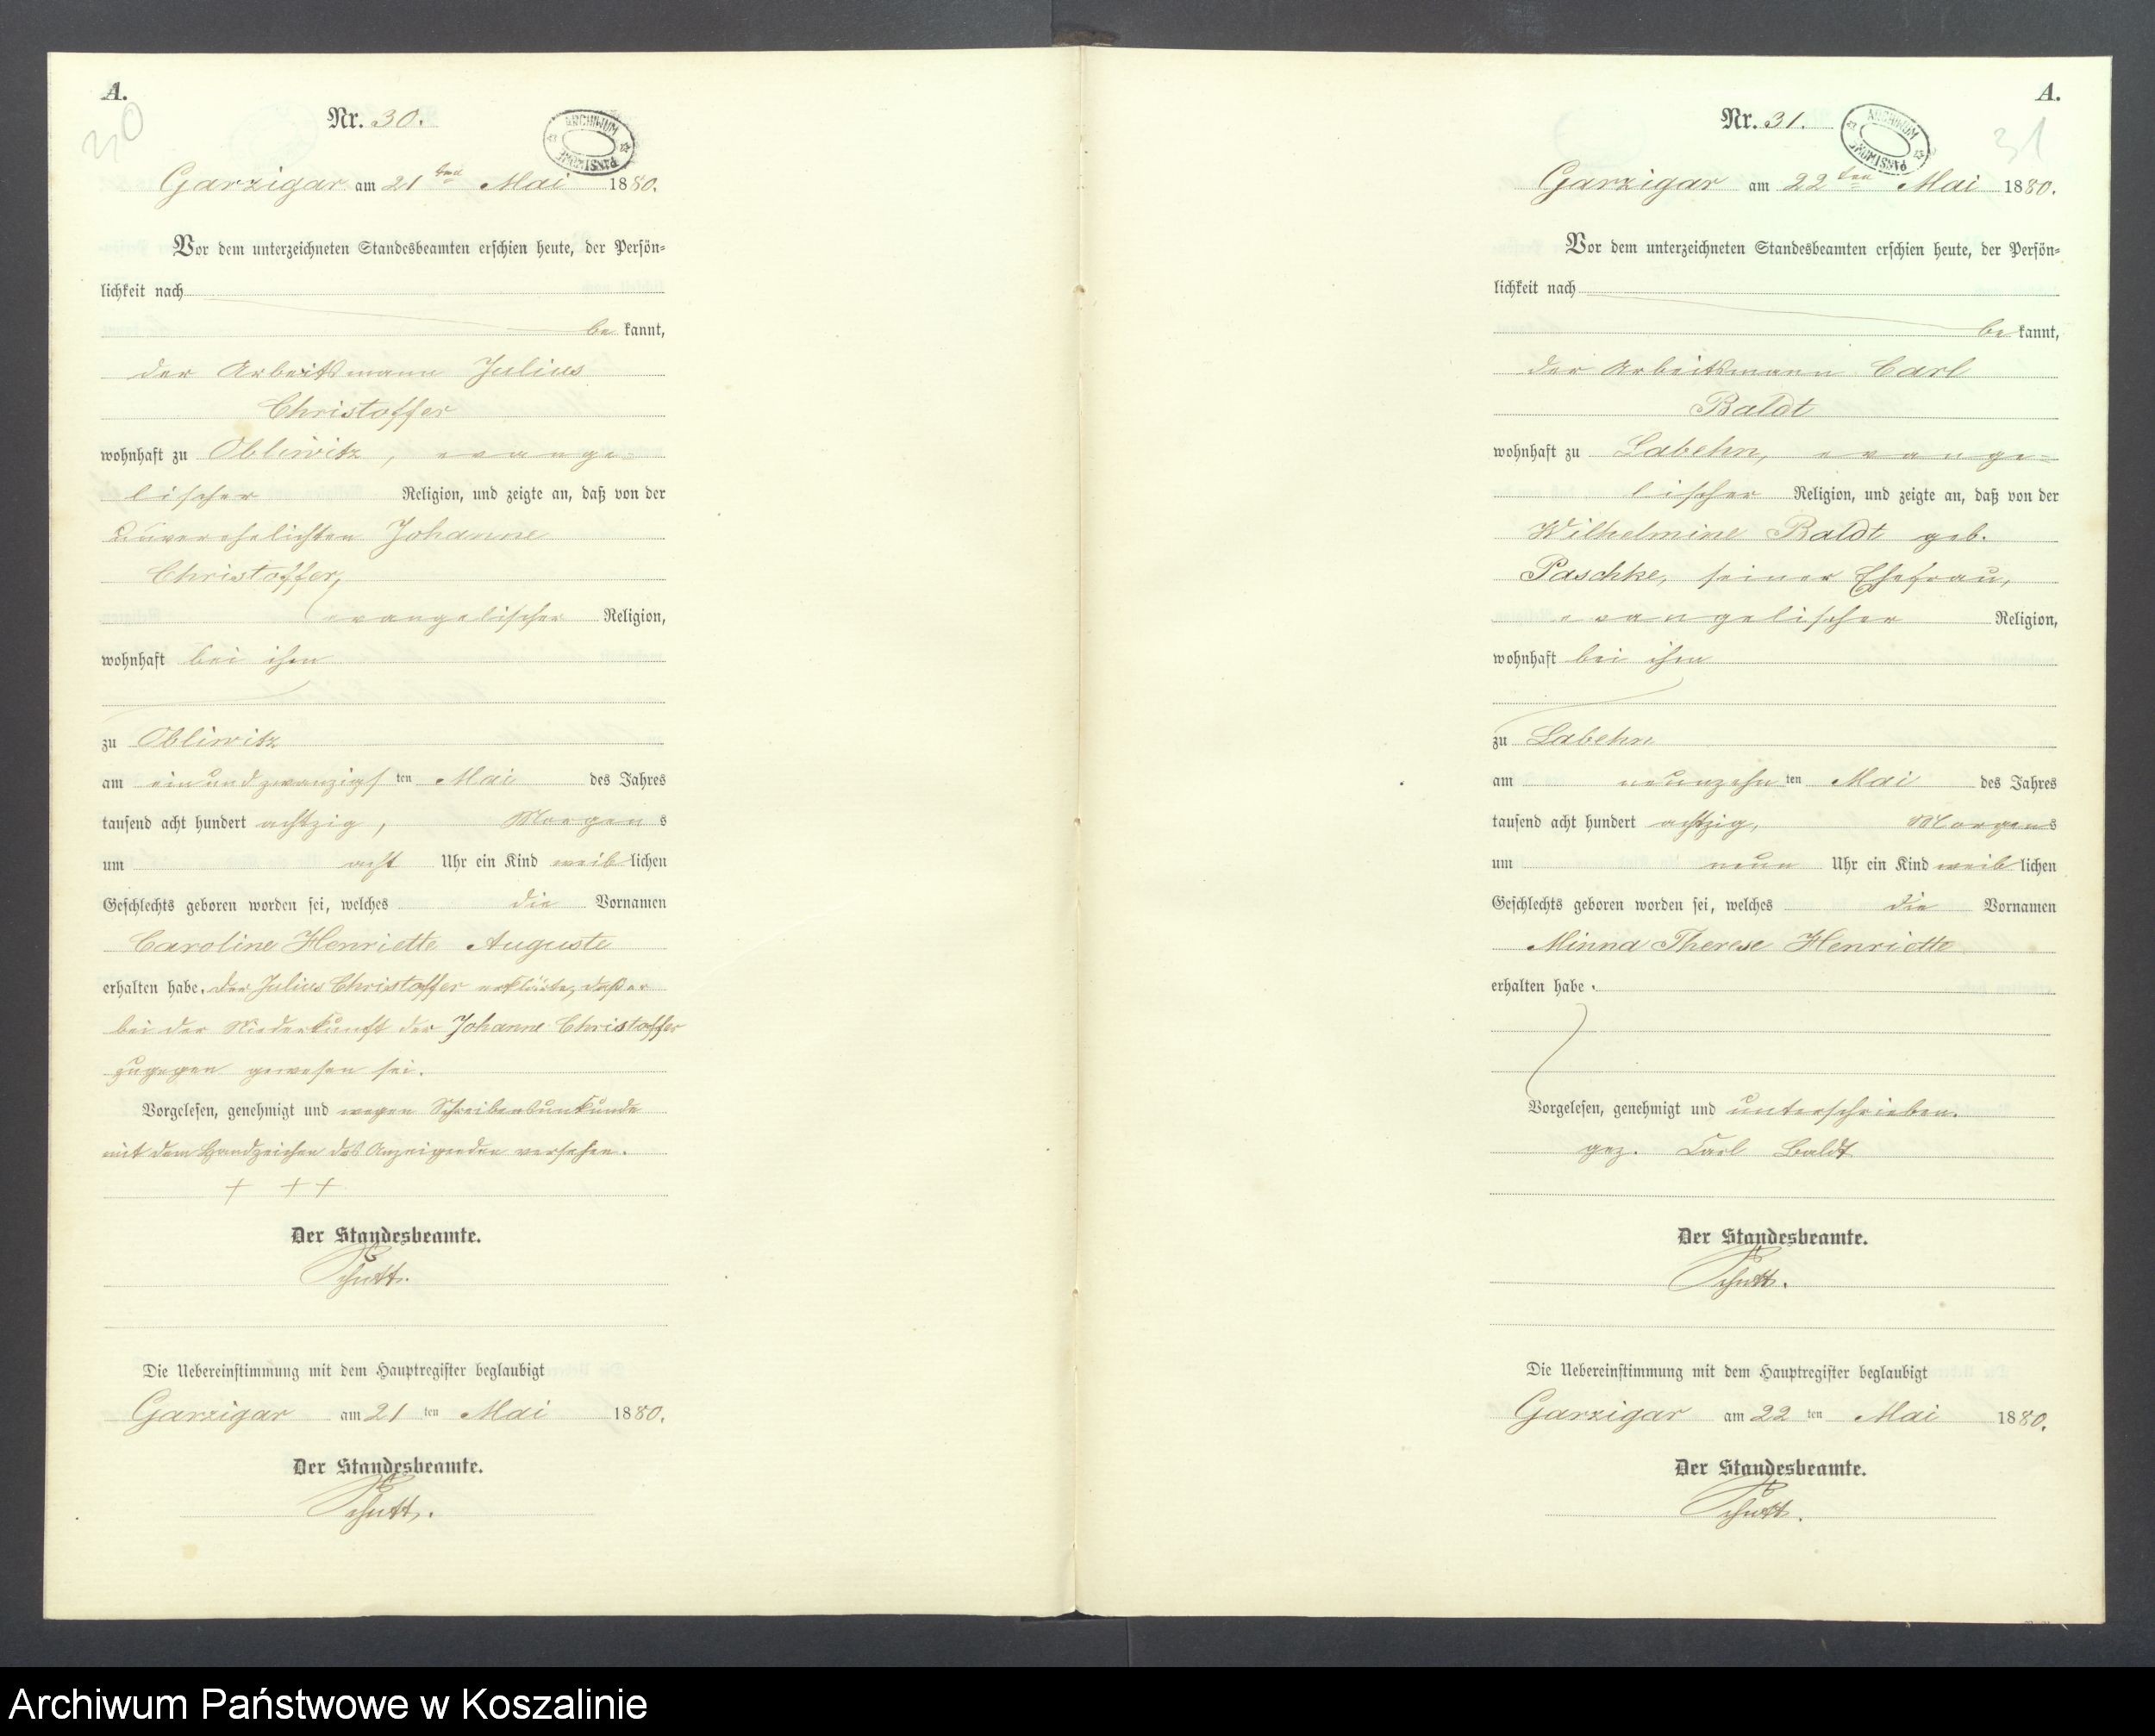 A.
30
Nr. 30.
ARCHIWUM PAŃSTWOWE
Garzigar am 21ten Mai 1880.
Vor dem unterzeichneten Standesbeamten erschien heute, der Persön=
lichkeit nach
be kannt,
der Arbeitsmann Julius
Christoffer
wohnhaft zu Obliwitz, evange=
lischer Religion, und zeigte an, daß von der
unverehelichten Johanne
Christoffer,
evangelischer Religion,
wohnhaft bei ihm
zu Obliwitz
am einundzwanzigsten Mai des Jahres
tausend acht hundert achtzig, Morgens
um acht Uhr ein Kind weiblichen
Geschlechts geboren worden sei, welches die Vornamen
Caroline Henriette Auguste
erhalten habe. Der Julius Christoffer erklärte, daß er
bei der Niederkunft der Johanne Christoffer
zugegen gewesen sei.
Vorgelesen, genehmigt und wegen Schreibensunkunde
mit dem Handzeichen des Anzeigenden versehen.
+ ++
Der Standesbeamte.
Schutt.
Die Uebereinstimmung mit dem Hauptregister beglaubigt
Garzigar am 21ten Mai 1880.
Der Standesbeamte.
Schutt.
A.
31
Nr. 31.
ARCHIWUM PAŃSTWOWE
Garzigar am 22ten Mai 1880.
Vor dem unterzeichneten Standesbeamten erschien heute, der Persön=
lichkeit nach
be kannt,
der Arbeitsmann Carl
Baldt
wohnhaft zu Labehn, evange=
lischer Religion, und zeigte an, daß von der
Wilhelmine Baldt geb.
Paschke, seiner Ehefrau,
evangelischer Religion,
wohnhaft bei ihm
zu Labehn
am neunzehnten Mai des Jahres
tausend acht hundert achtzig, Morgens
um neun Uhr ein Kind weiblichen
Geschlechts geboren worden sei, welches die Vornamen
Minna Therese Henriette
erhalten habe.
Vorgelesen, genehmigt und unterschrieben.
gez. Carl Baldt
Der Standesbeamte.
Schutt.
Die Uebereinstimmung mit dem Hauptregister beglaubigt
Garzigar am 22ten Mai 1880.
Der Standesbeamte.
Schutt.
Archiwum Państwowe w Koszalinie